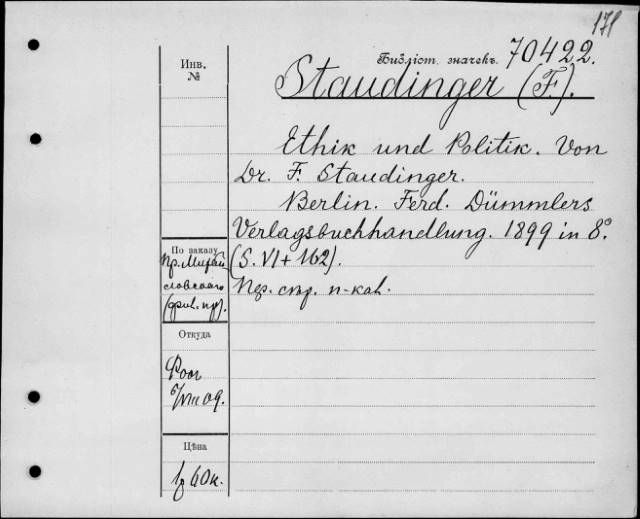 171
Библіот. значекъ. 70422.
Инв.
№
Staudinger (F).
Ethik und Politik. Von
Dr. F. Staudinger.
Berlin. Ferd. Dümmlers
Verlagsbuchhandlung. 1899 in 8°.
(S. VI + 162).
По заказу
Пр. Михай
ловскаго
Пер. стр. п-кал.
Откуда
09.
Цѣна
60 к.